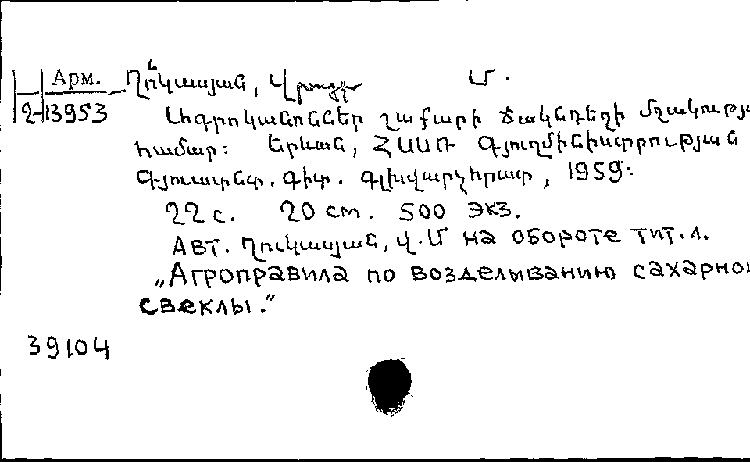 Арм. Ղուկասյան, Վ Մ.
2-13953
Ագրոկանոններ շաքարի ճակնդեղի մշակությ
համար: Երևան, ՀՍՍՌ Գյուղմինիստրության
Գյուղատնտ. գիտ. գլխվարչիրատ, 1959:
22 с. 20 см. 500 экз.
Авт. Ղուկասյան, Վ.Մ на обороте тит.л.
„Агроправила по возделыванию сахарно
свеклы."
39104